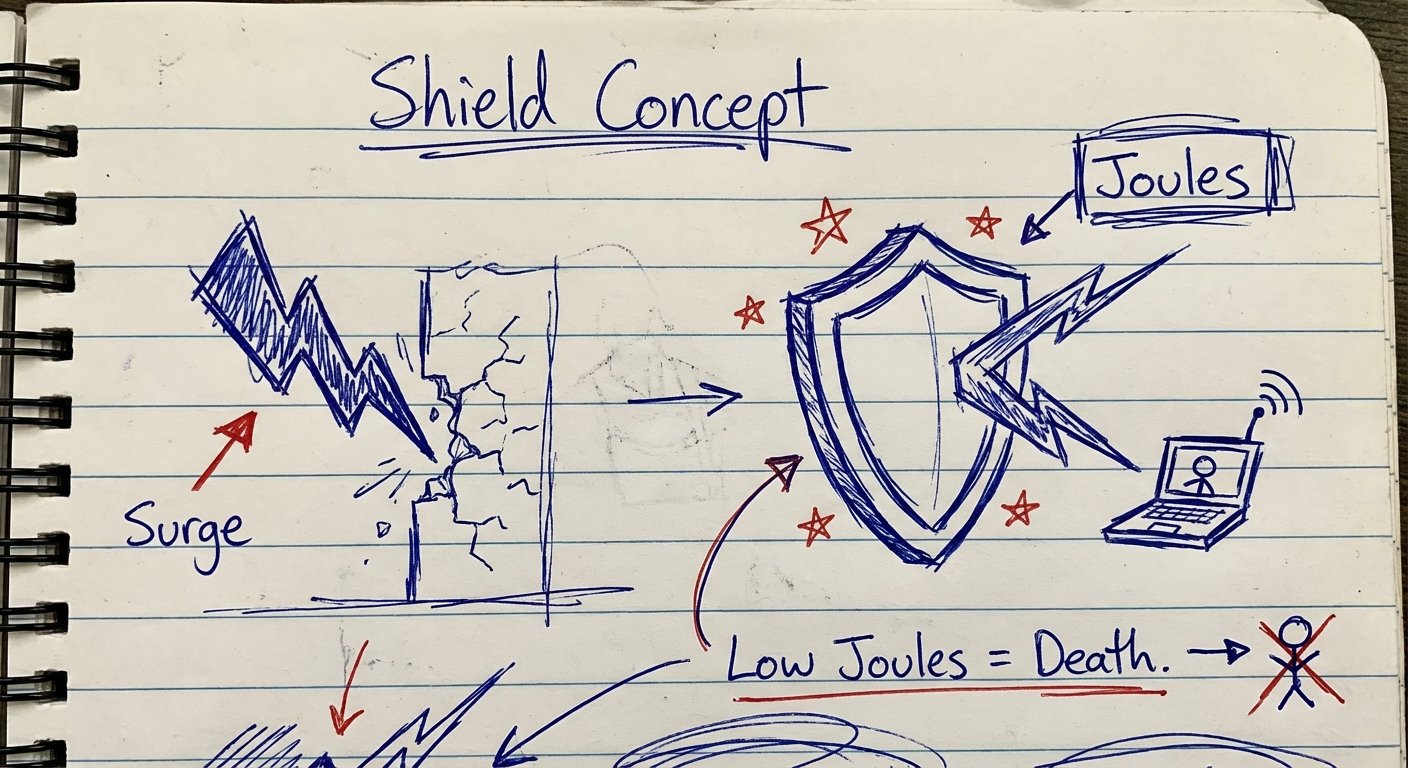 Shield Concept
Joules
Surge
Low Joules = Death.